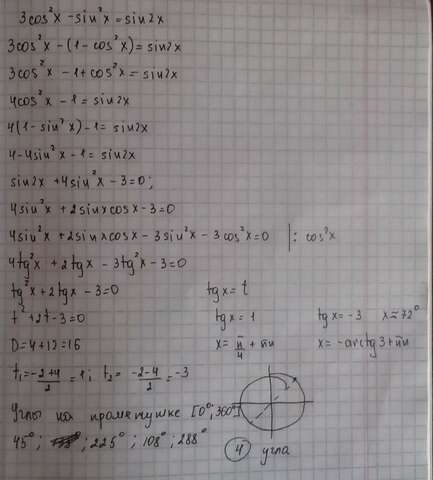 3cos²x - sin²x = sin2x
3cos²x - (1 - cos²x) = sin2x
3cos²x - 1 + cos²x = sin2x
4cos²x - 1 = sin2x
4(1 - sin²x) - 1 = sin2x
4 - 4sin²x - 1 = sin2x
sin2x + 4sin²x - 3 = 0;
4sin²x + 2sinxcosx - 3 = 0
4sin²x + 2sinxcosx - 3sin²x - 3cos²x = 0 | : cos²x
4tg²x + 2tgx - 3tg²x - 3 = 0
tg²x + 2tgx - 3 = 0 tgx = t
t² + 2t - 3 = 0 tgx = 1 tgx = -3 x ≈ 72°
D = 4 + 12 = 16 x = π/4 + πn x = -arctg3 + πn
t₁ = (-2+4)/2 = 1; t₂ = (-2-4)/2 = -3
Углы на промежутке [0°; 360°]
45°; 225°; 108°; 288° 4 угла